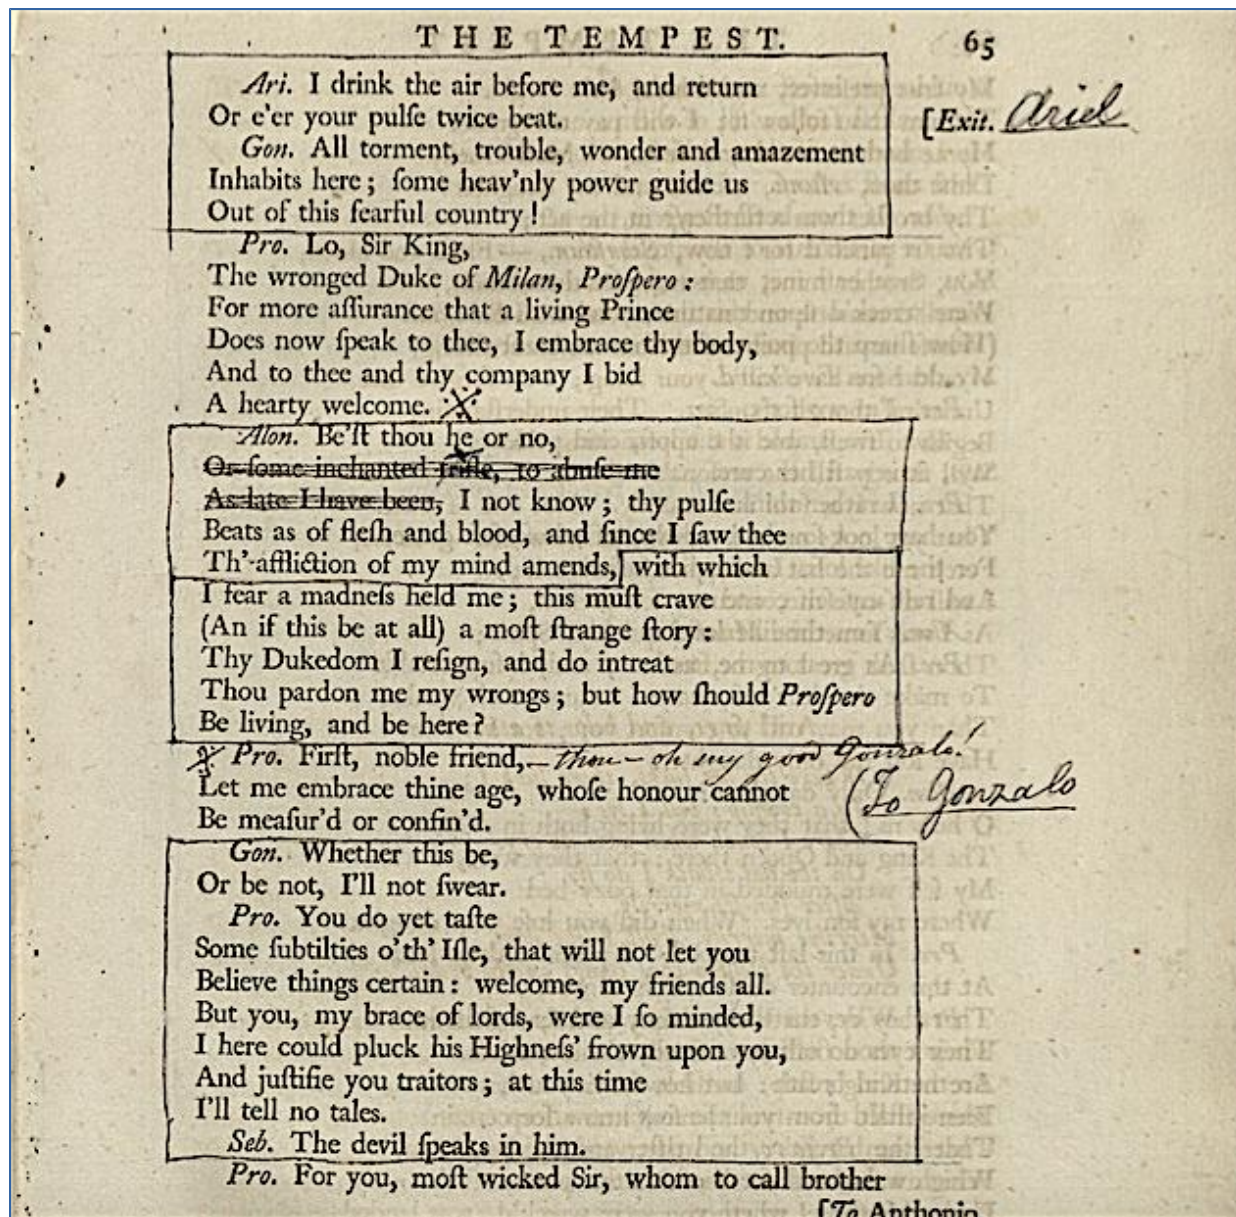 THE TEMPEST. 65
Ari. I drink the air before me, and return
Or e'er your pulſe twice beat. [Exit. Ariel
Gon. All torment, trouble, wonder and amazement
Inhabits here; ſome heav'nly power guide us
Out of this fearful country!
Pro. Lo, Sir King,
The wronged Duke of Milan, Proſpero:
For more aſſurance that a living Prince
Does now ſpeak to thee, I embrace thy body,
And to thee and thy company I bid
A hearty welcome.
Alon. Be'ſt thou he or no,
Or ſome inchanted trifle, to abuſe me
As late I have been, I not know; thy pulſe
Beats as of fleſh and blood, and ſince I ſaw thee
Th'-affliction of my mind amends, with which
I fear a madneſs held me; this muſt crave
(An if this be at all) a moſt ſtrange ſtory:
Thy Dukedom I reſign, and do intreat
Thou pardon me my wrongs; but how ſhould Proſpero
Be living, and be here?
Pro. Firſt, noble friend, – thou – oh my good Gonzalo!
Let me embrace thine age, whoſe honour cannot (To Gonzalo
Be meaſur'd or confin'd.
Gon. Whether this be,
Or be not, I'll not ſwear.
Pro. You do yet taſte
Some ſubtilties o'th' Iſle, that will not let you
Believe things certain: welcome, my friends all.
But you, my brace of lords, were I ſo minded,
I here could pluck his Highneſs' frown upon you,
And juſtifie you traitors; at this time
I'll tell no tales.
Seb. The devil ſpeaks in him.
Pro. For you, moſt wicked Sir, whom to call brother
[To Anthonio